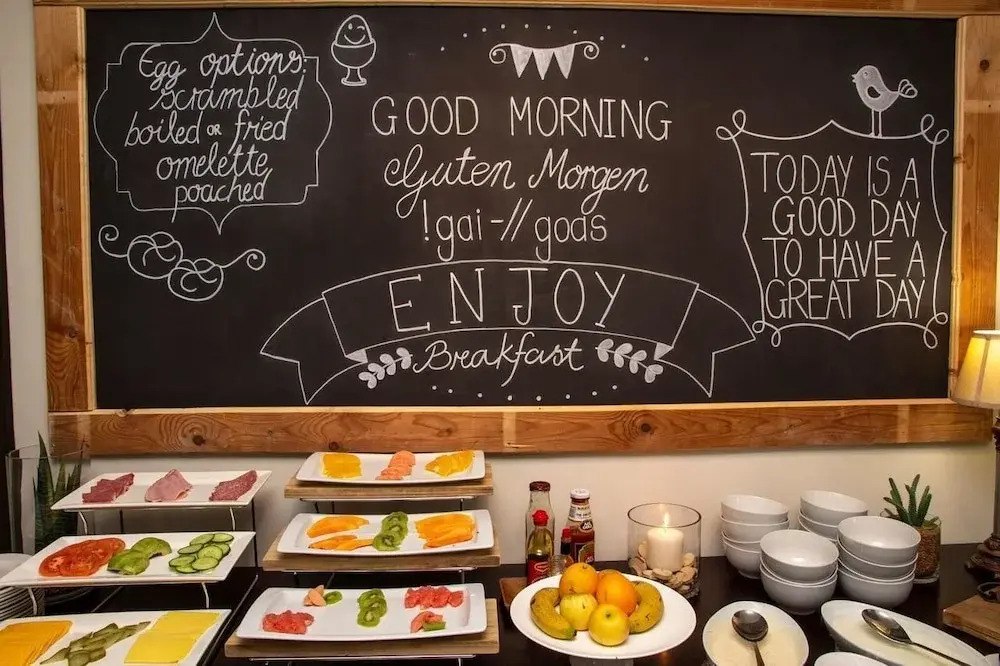 Egg options:
scrambled
boiled OR fried
omelette
poached
GOOD MORNING
Guten Morgen
!gai-//goas
ENJOY
Breakfast
TODAY IS A
GOOD DAY
TO HAVE A
GREAT DAY